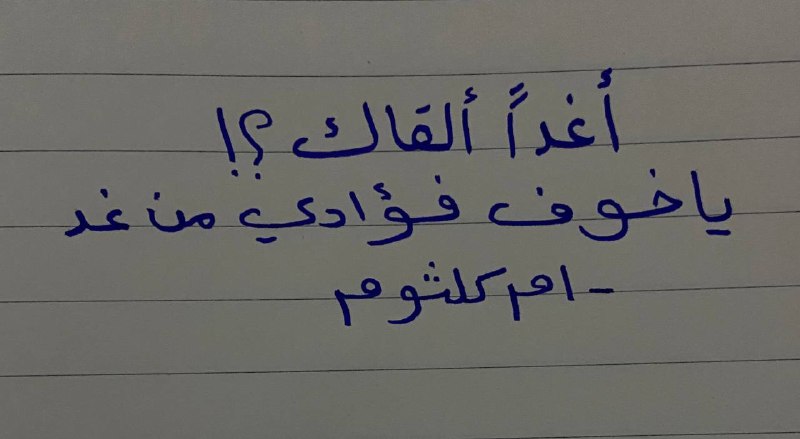 أغداً ألقاك ؟!
ياخوف فؤادي من غد
- ام كلثوم